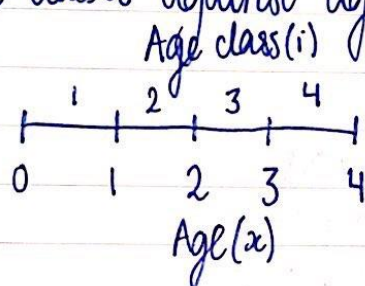 Age class(i)
1 2 3 4
0 1 2 3 4
Age(x)